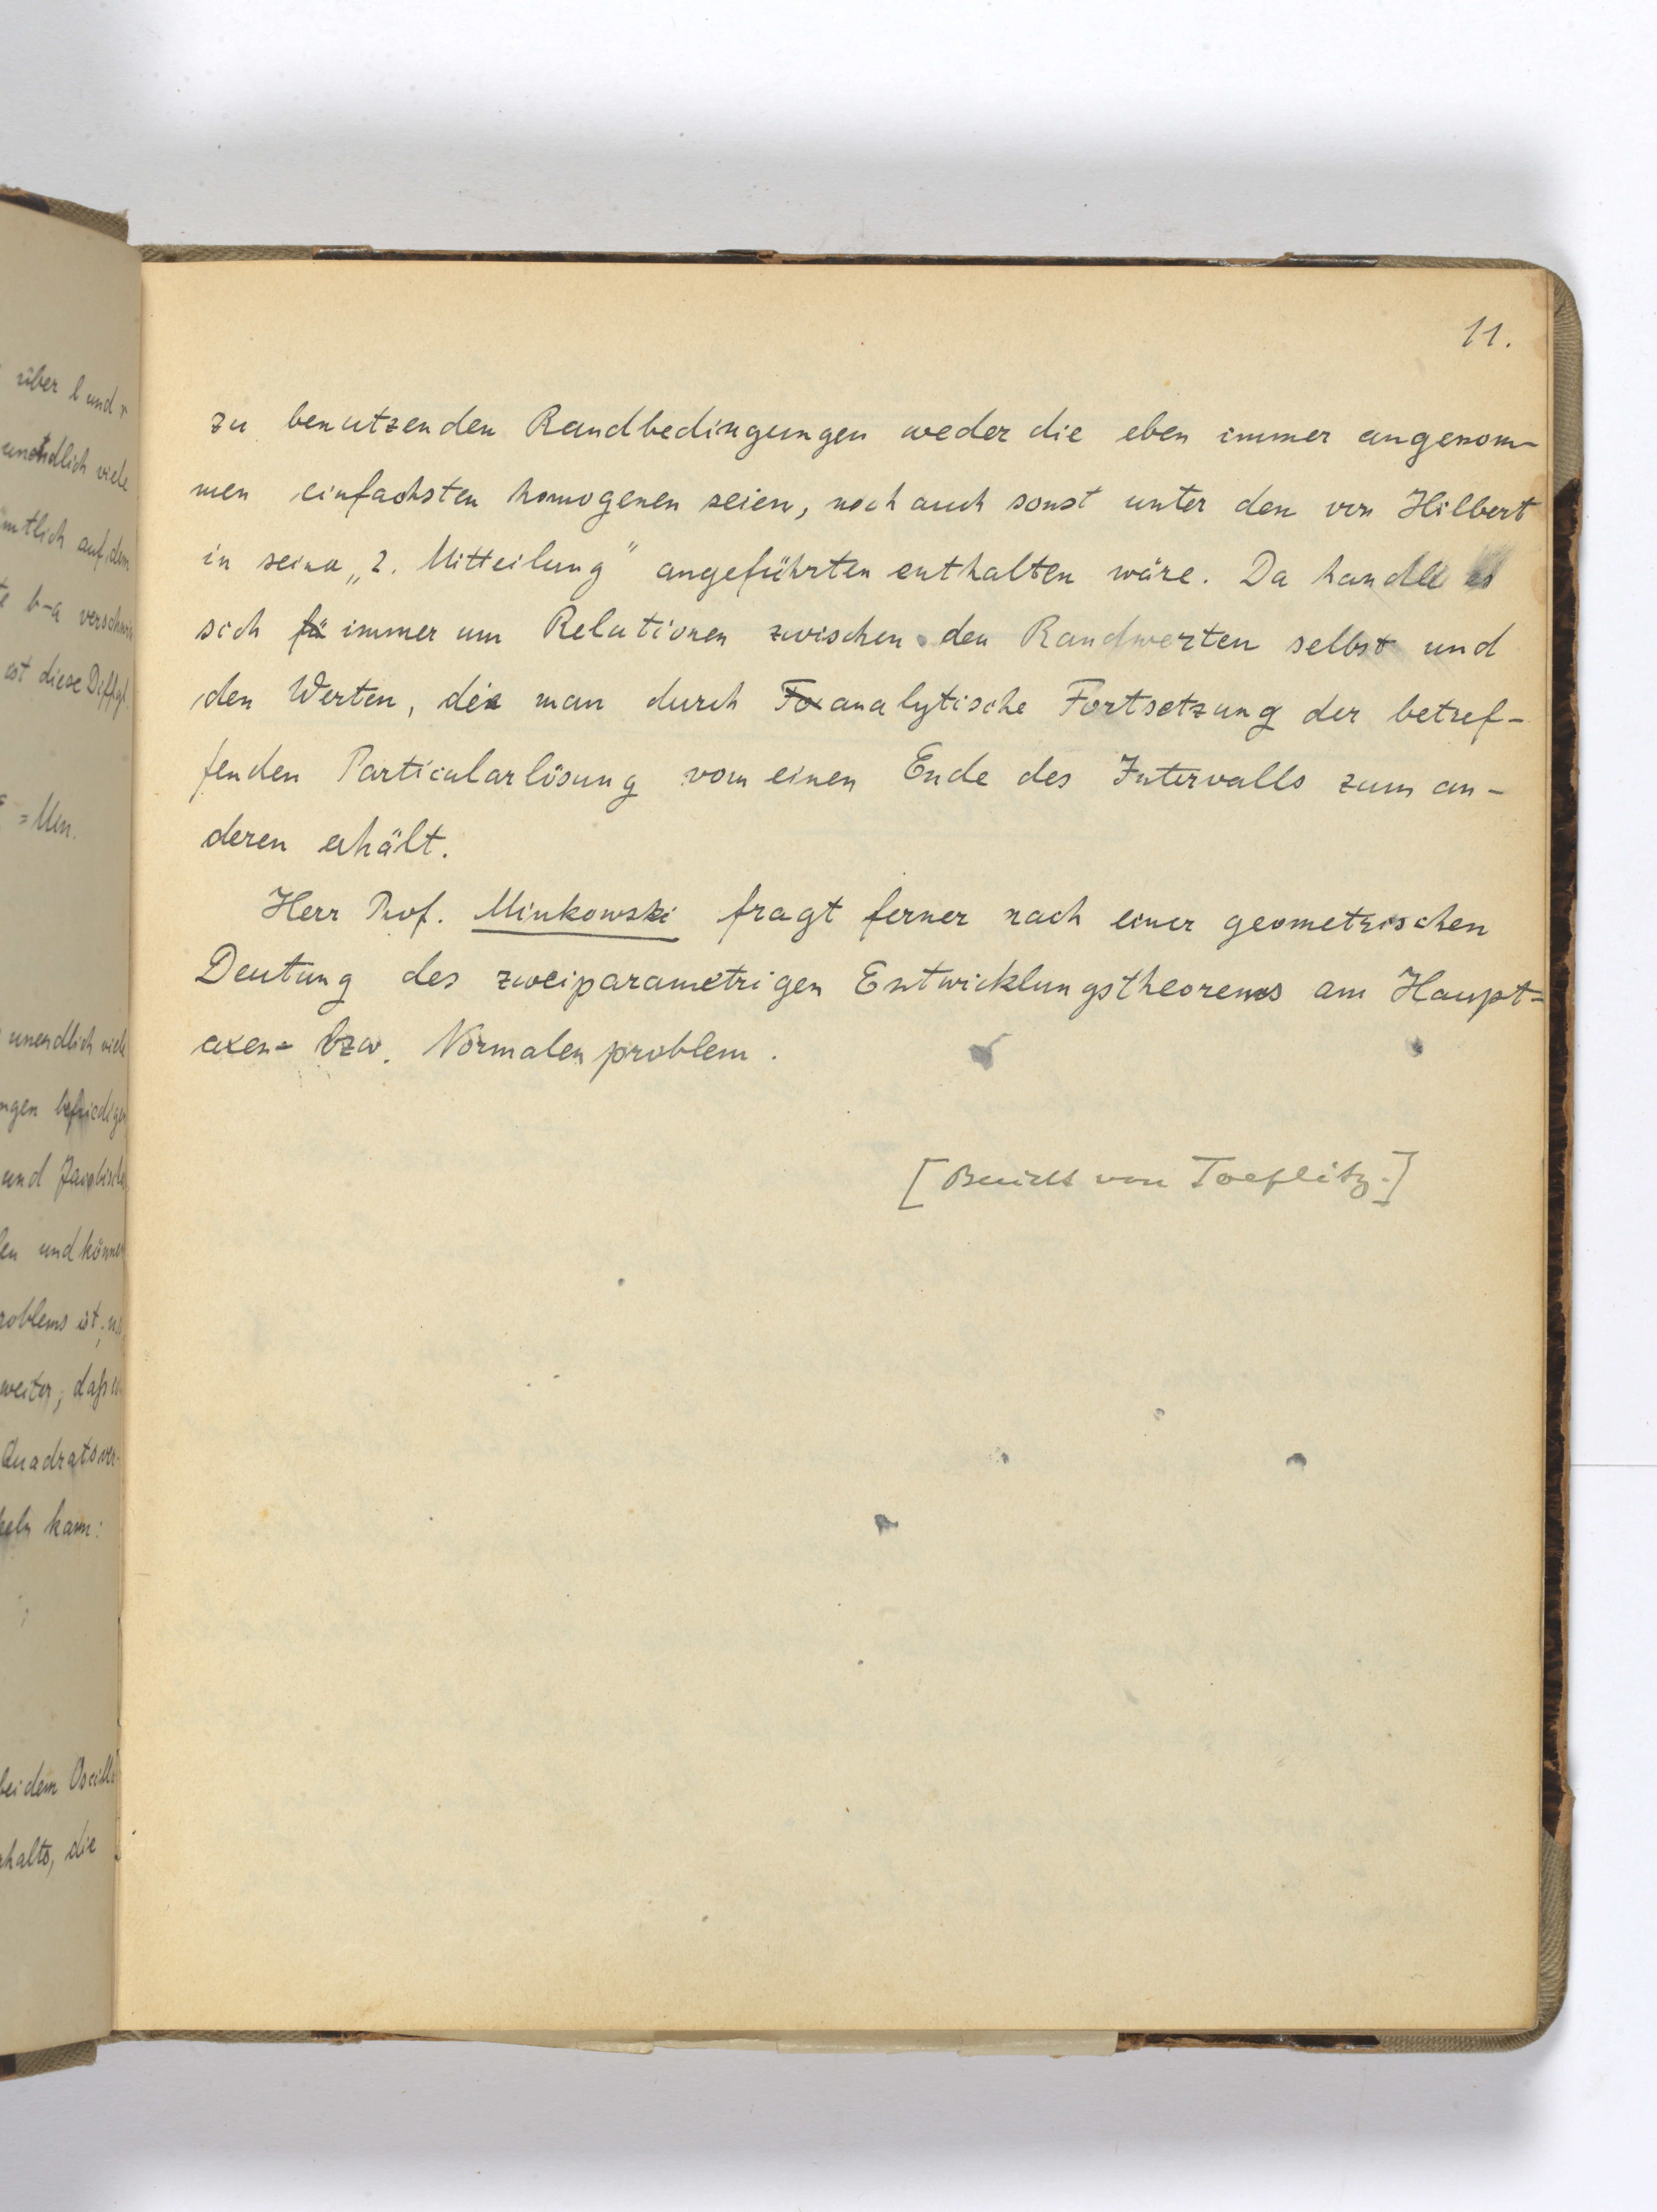 über l und r
unendlich viele
mtlich auf dem
b-a verschwin
ist diese Diffgl.
= Min.
unendlich viele
ngen befriedigen
und Jacobische
en und können
roblems ist,
weiter, daß
Quadrats ver-
keln kann:
bei dem Oscill
halts, die
11.
zu benutzenden Randbedingungen weder die eben immer angenom-
men einfachsten homogenen seien, noch auch sonst unter den von Hilbert
in seiner „2. Mitteilung" angeführten enthalten wäre. Da handle es
sich fü immer um Relationen zwischen den Randwerten selbst und
den Werten, die man durch Fo analytische Fortsetzung der betref-
fenden Particularlösung vom einen Ende des Intervalls zum an-
deren erhält.
Herr Prof. Minkowski fragt ferner nach einer geometrischen
Deutung des zweiparametrigen Entwicklungstheorems am Haupt-
axen- bzw. Normalenproblem.
[Bericht von Toeplitz.]